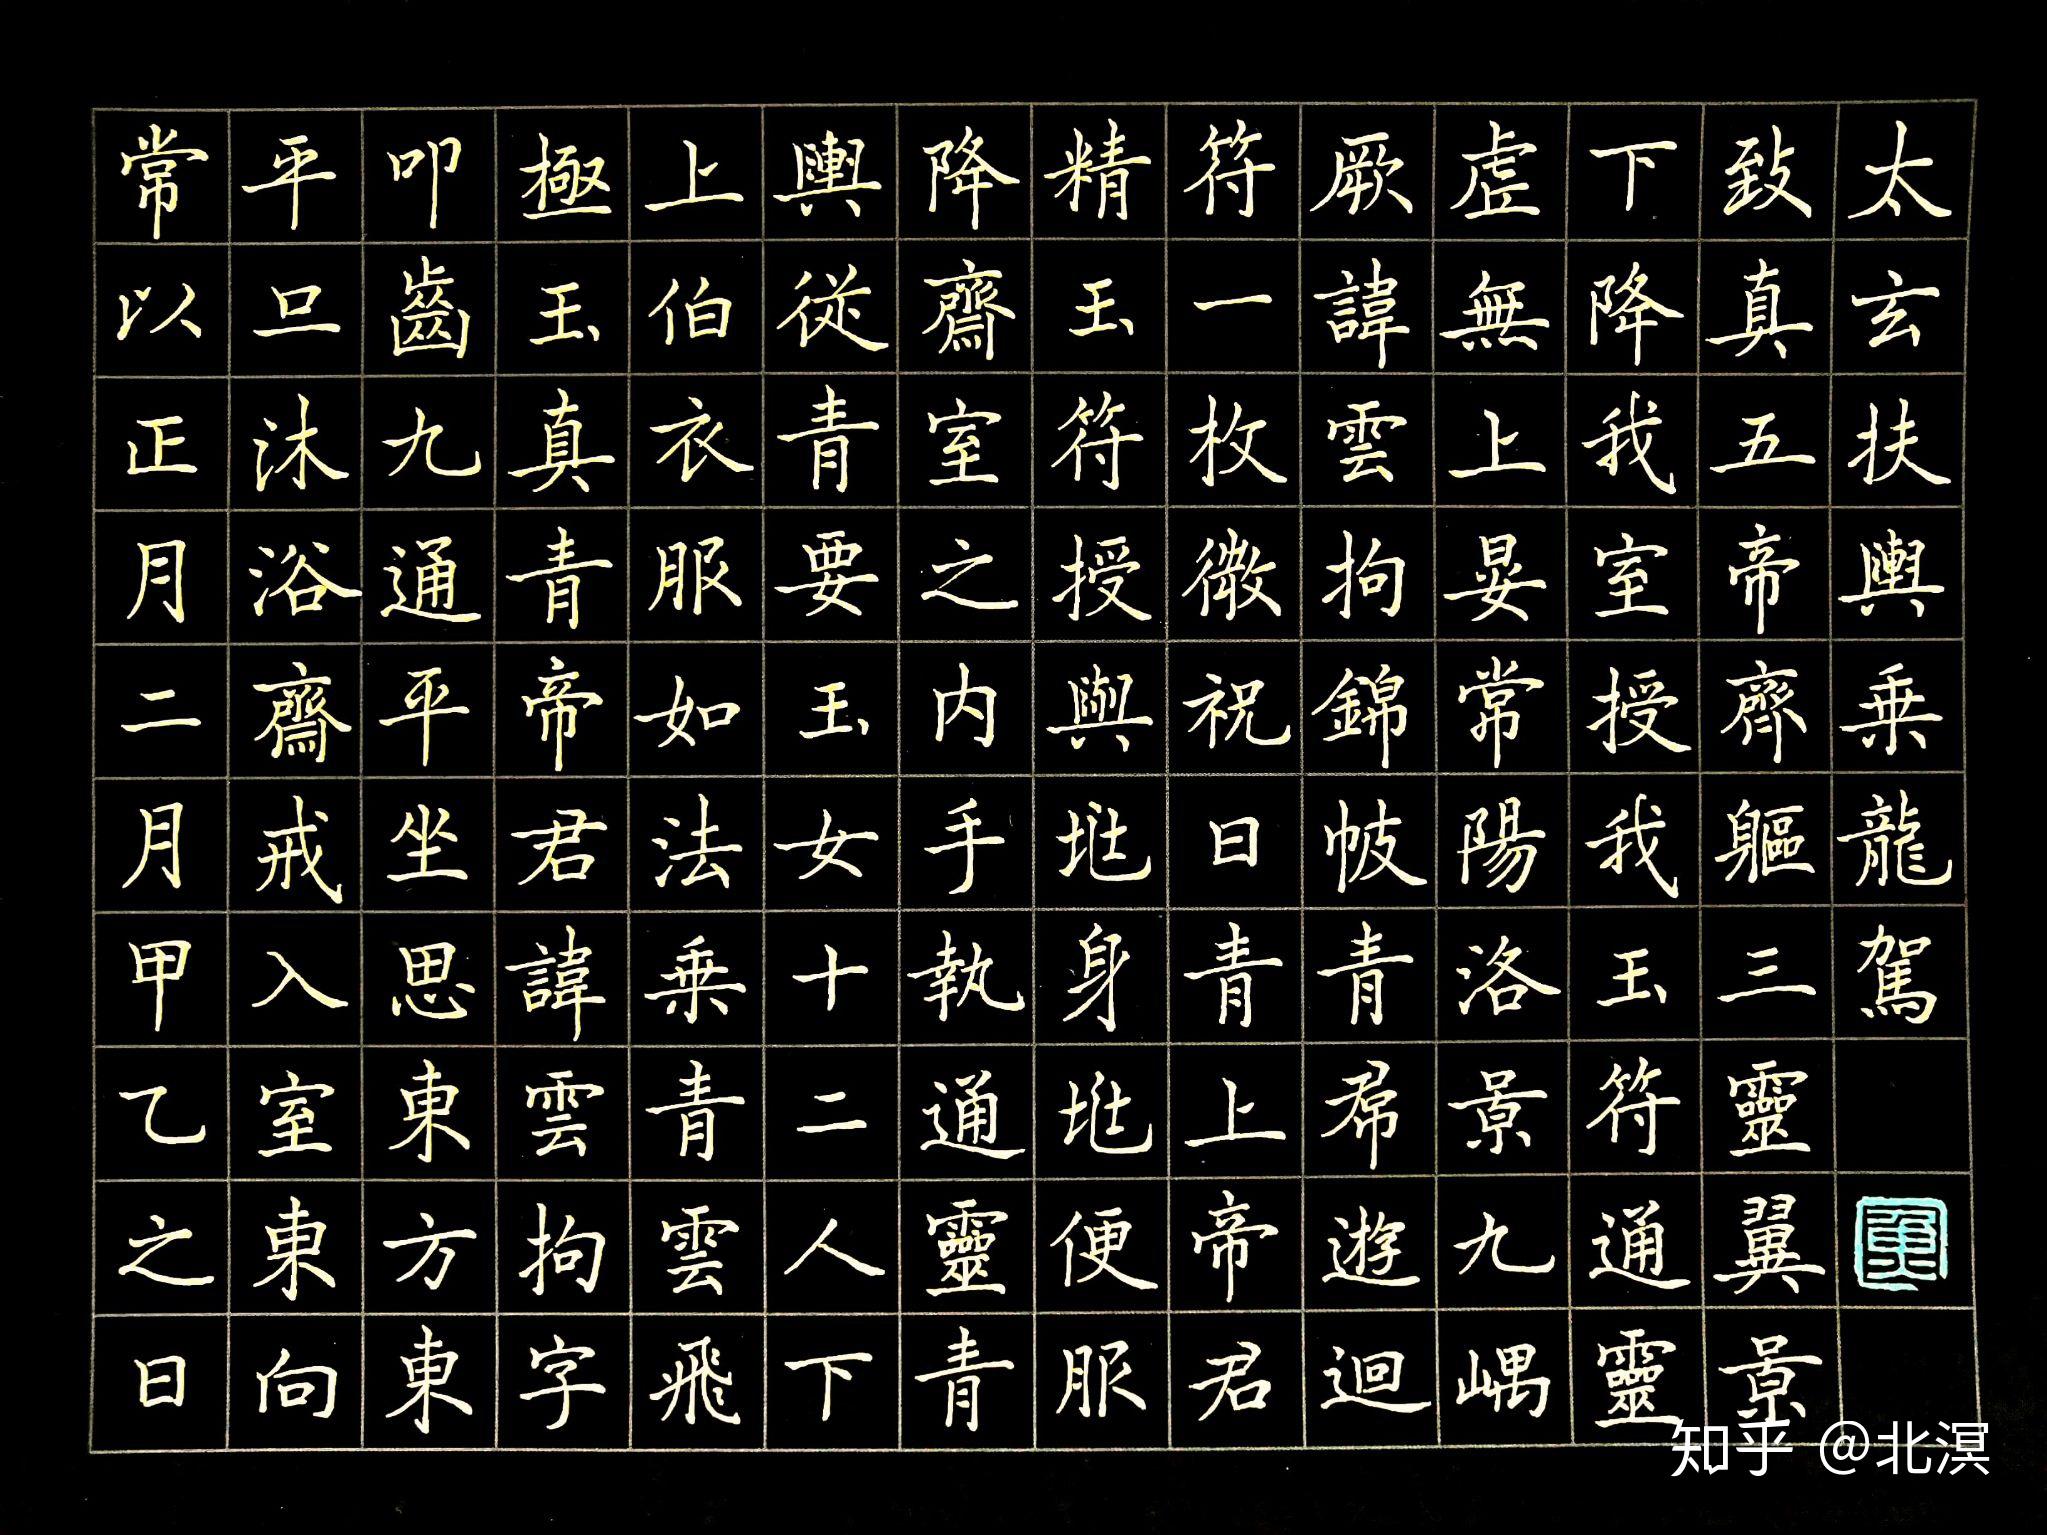 常以正月二月甲乙之日
平旦沐浴齋戒入室東向
叩齒九通平坐思東方東
極玉真青帝君諱雲拘字
上伯衣服如法乗青雲飛
輿從青要玉女十二人下
降齋室之内手執通靈青
精玉符授與兆身兆便服
符一枚微祝曰青上帝君
厥諱雲拘錦帔青帬遊迴
虛無上晏常陽洛景九嵎
下降我室授我玉符通靈
致真五帝齊軀三靈翼景
太玄扶輿乗龍駕
知乎 @北溟